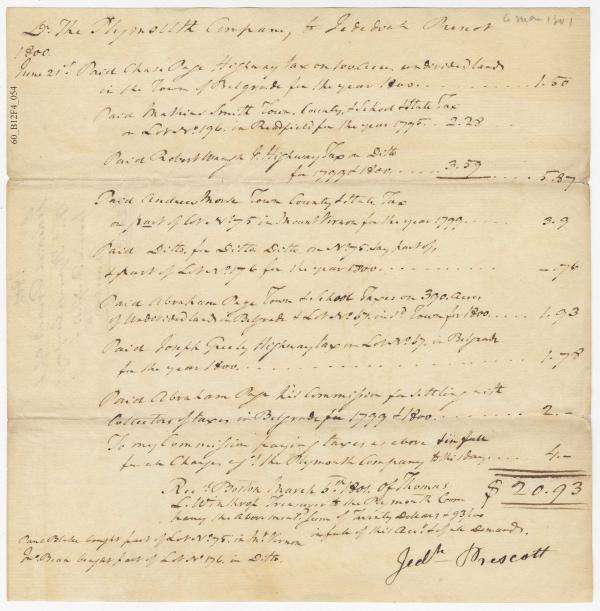 6 Mar 1801
Dr. The Plymouth Company, to Jedediah Prescot
1800.
June 21st. Paid Chase Page Highway tax on 100 Acres undivided lands
in the Town of Belgrade for the year 1800 . . . . . . . . 1.50
Paid Mathias Smith Town, County, & School & State Tax
on Lot No. 196. in Readfield for the year 1795. . 2.28
Paid Robert Waugh Jr. Highway Tax on Ditto
for 1799 & 1800. . . . . . 3.59 . . . . 5.87
Paid Andrew Morse Town County & State Tax
on part of Lot No. 75 in Mount Vernon for the year 1799 . . . . . 3.9
Paid Ditto, for Ditto Ditto, on No. 75. Say part of,
& part of Lot No. 176 for the year 1800. . . . . . . . . . . —.76
Paid Abraham Page Town & School Taxes on 390. Acres
of Undivided land in Belgrade & Lot No. 67. in sd. Town for 1800. . . . . 1.93
Paid Joseph Greely Highway tax on Lot No. 67. in Belgrade
for the year 1800. . . . . . . . . . . . . . . . 1.78
Paid Abraham Page his Commission for settling with
Collectors of taxes in Belgrade for 1799 & 1800. . . . . . . . . 2.—
To my Commission paying taxes as above & in full
for all Charges of the Plymouth Company to this day. . . . 4.—
$ 20.93
Recd. Boston March 6th 1801. Of Thomas
L. Winthrop Treasurer to the Plymouth Com
pany, the abovementd. Sum of Twenty Dollars & 93/100
in full of this Acct. & of all Demands.
Paul Blake bought part of Lot No. 75. in Mt. Vernon
Jno. Bean bought part of Lot No. 176. in Ditto.
Jedh. Prescott
60_B12F4_054